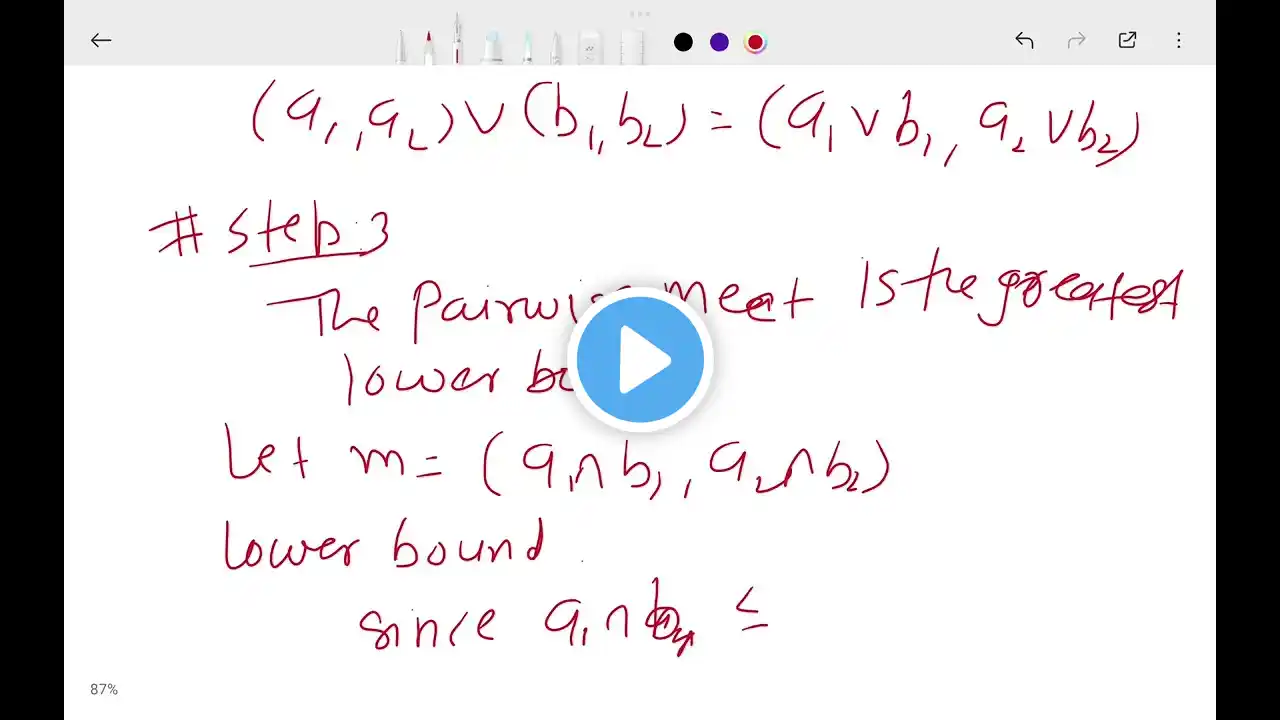 (a₁, a₂) ∨ (b₁, b₂) = (a₁ ∨ b₁, a₂ ∨ b₂)
# Step 3
The Pairwise meet is the greatest
lower
Let m = (a₁ ∩ b₁, a₂ ∩ b₂)
lower bound
since a₁ ∩ b₁ ≤
87%